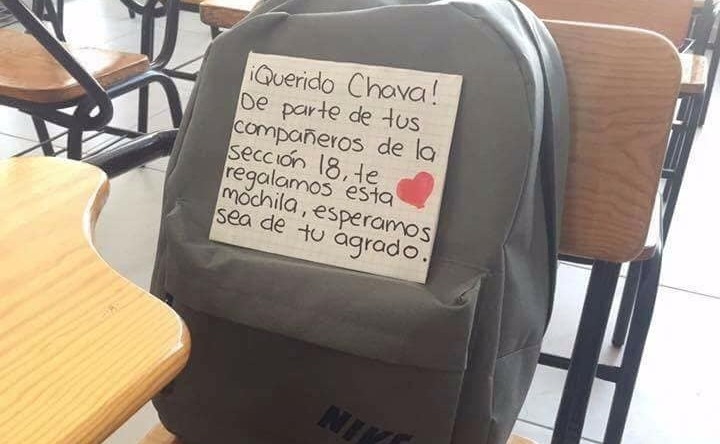 ¡Querido Chava!
De parte de tus
compañeros de la
sección 18, te
regalamos esta
mochila, esperamos
sea de tu agrado.
NIKE